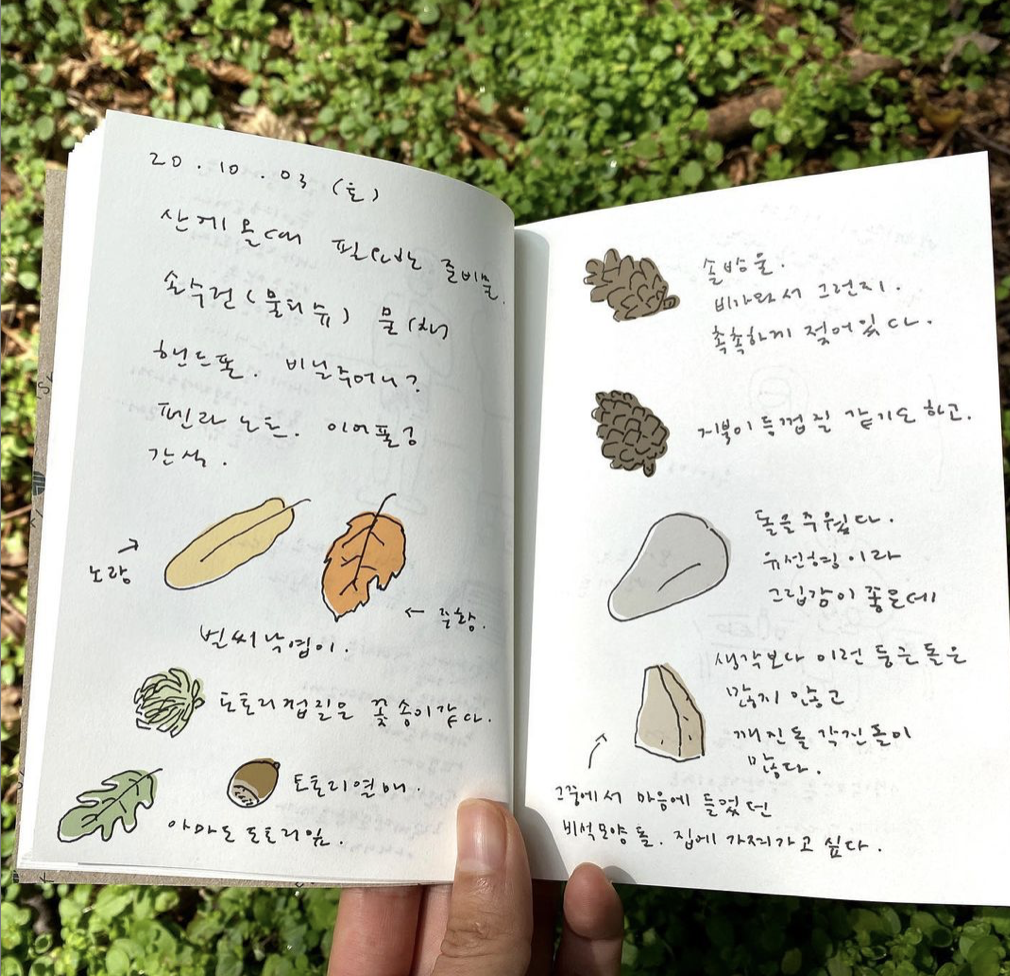 20.10.03 (토)
산에 올 때 필요한 준비물.
손수건(물티슈) 물(차)
핸드폰. 비닐주머니?
펜과 노트. 이어폴긍
간식.
노랑
주황.
벌써 낙엽이.
도토리껍질은 꽃송이같다.
도토리열매.
아마도 도토리잎.
솔방울.
비가와서 그런지.
촉촉하게 젖어있다.
거북이등껍질 같기도 하고.
돌을 주웠다.
유선형이라
그립감이 좋은데
생각보다 이런 둥근 돌은
많지 않고
깨진돌 각진돌이
많다.
그중에서 마음에 들었던
비석모양 돌. 집에 가져가고 싶다.